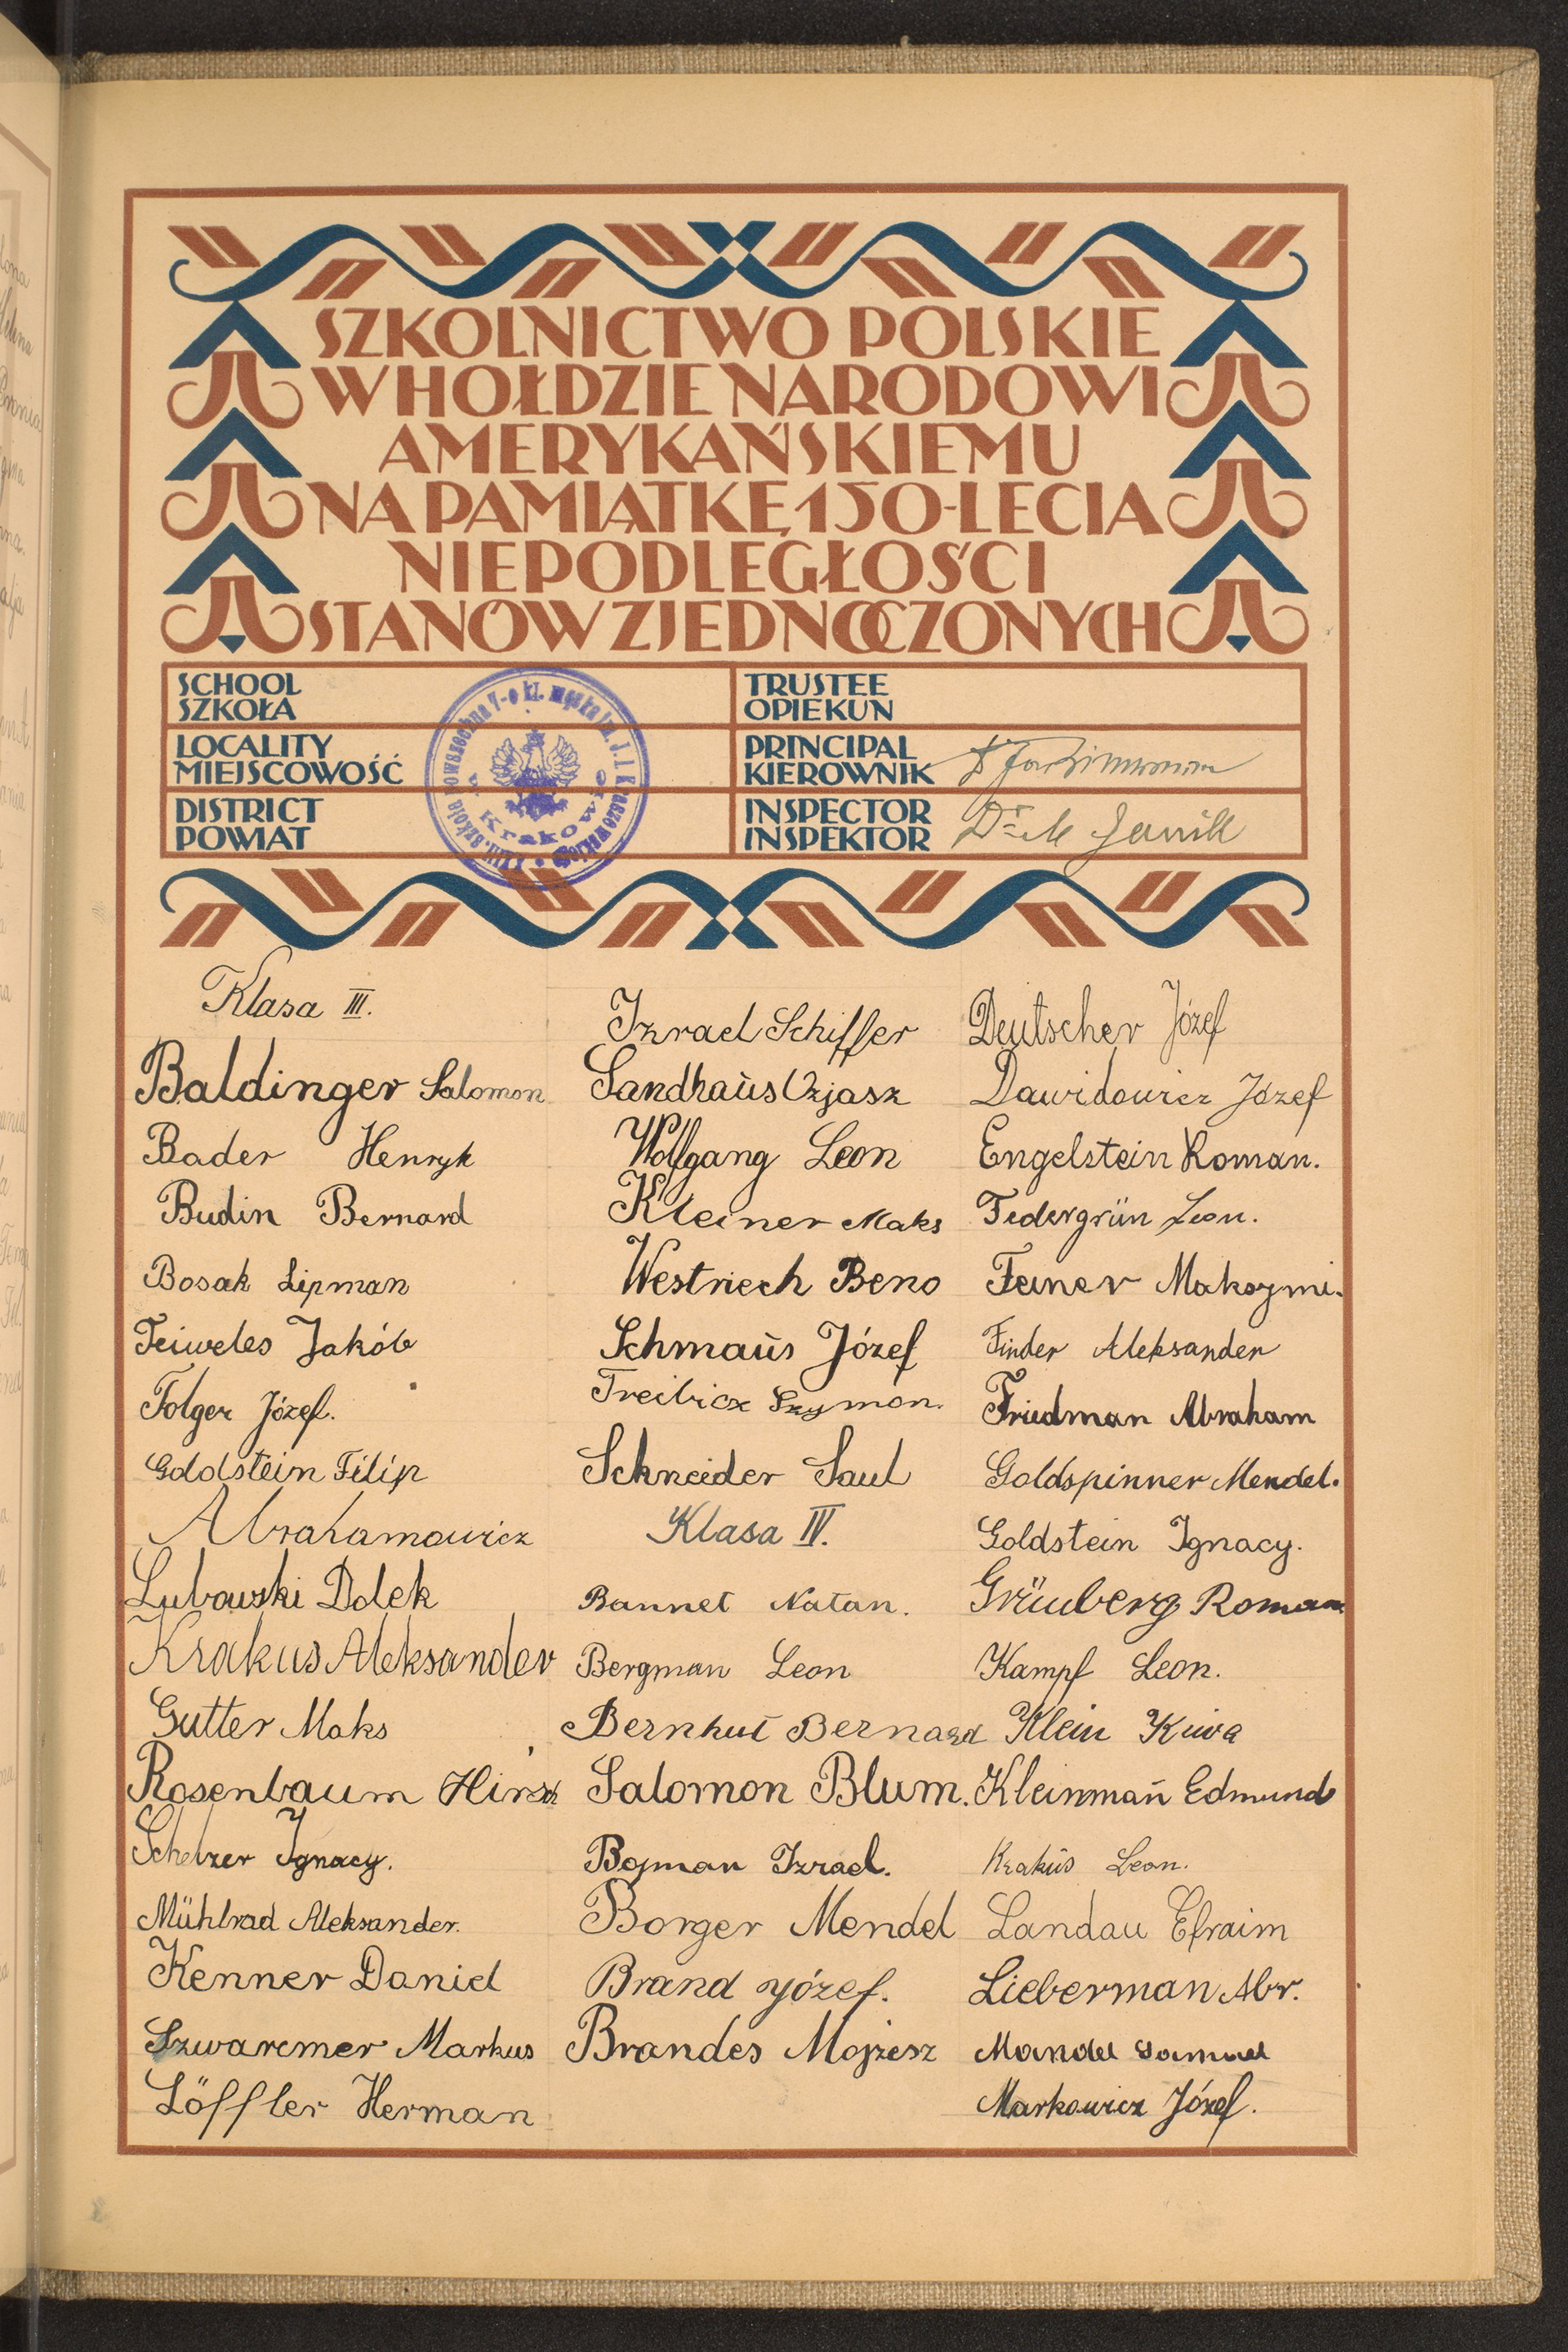 SZKOLNICTWO POLSKIE
W HOŁDZIE NARODOWI
AMERYKAŃSKIEMU
NA PAMIĄTKĘ 150-LECIA
NIEPODLEGŁOŚCI
STANÓW ZJEDNOCZONYCH
SCHOOL
SZKOŁA
LOCALITY
MIEJSCOWOŚĆ
DISTRICT
POWIAT
TRUSTEE
OPIEKUN
PRINCIPAL
KIEROWNIK
INSPECTOR
INSPEKTOR
Dr M Janik
szkoła powszechna 7-o kl. męska im. J. I. Kraszewskiego
w Krakowie
Klasa III.
Baldinger Salomon
Bader Henryk
Budin Bernard
Bosak Lipman
Feiweles Jakób
Folger Józef.
Goldstein Filip
Abrahamowicz
Lubowski Dolek
Krakus Aleksander
Gutter Maks
Rosenbaum Hirsch
Schelzer Ignacy.
Mühlrad Aleksander.
Kenner Daniel
Szwarcmer Markus
Löffler Herman
Izrael Schiffer
Sandhaus Ozjasz
Wolfgang Leon
Kleiner Maks
Westriech Beno
Schmaus Józef
Treibicz Szymon.
Schneider Saul
Klasa IV.
Bannet Natan.
Bergman Leon
Bernhut Bernard
Salomon Blum.
Bojman Izrael.
Borger Mendel
Brand Józef.
Brandes Mojżesz
Deutscher Józef
Dawidowicz Józef
Engelstein Roman.
Federgrün Leon.
Feiner Maksymi.
Finder Aleksander
Friedman Abraham
Goldspinner Mendel.
Goldstein Ignacy.
Grünberg Roman
Kampf Leon.
Klein Kiwa
Kleinman Edmund
Krakus Leon.
Landau Efraim
Lieberman Abr.
Mandel Samuel
Markowicz Józef.